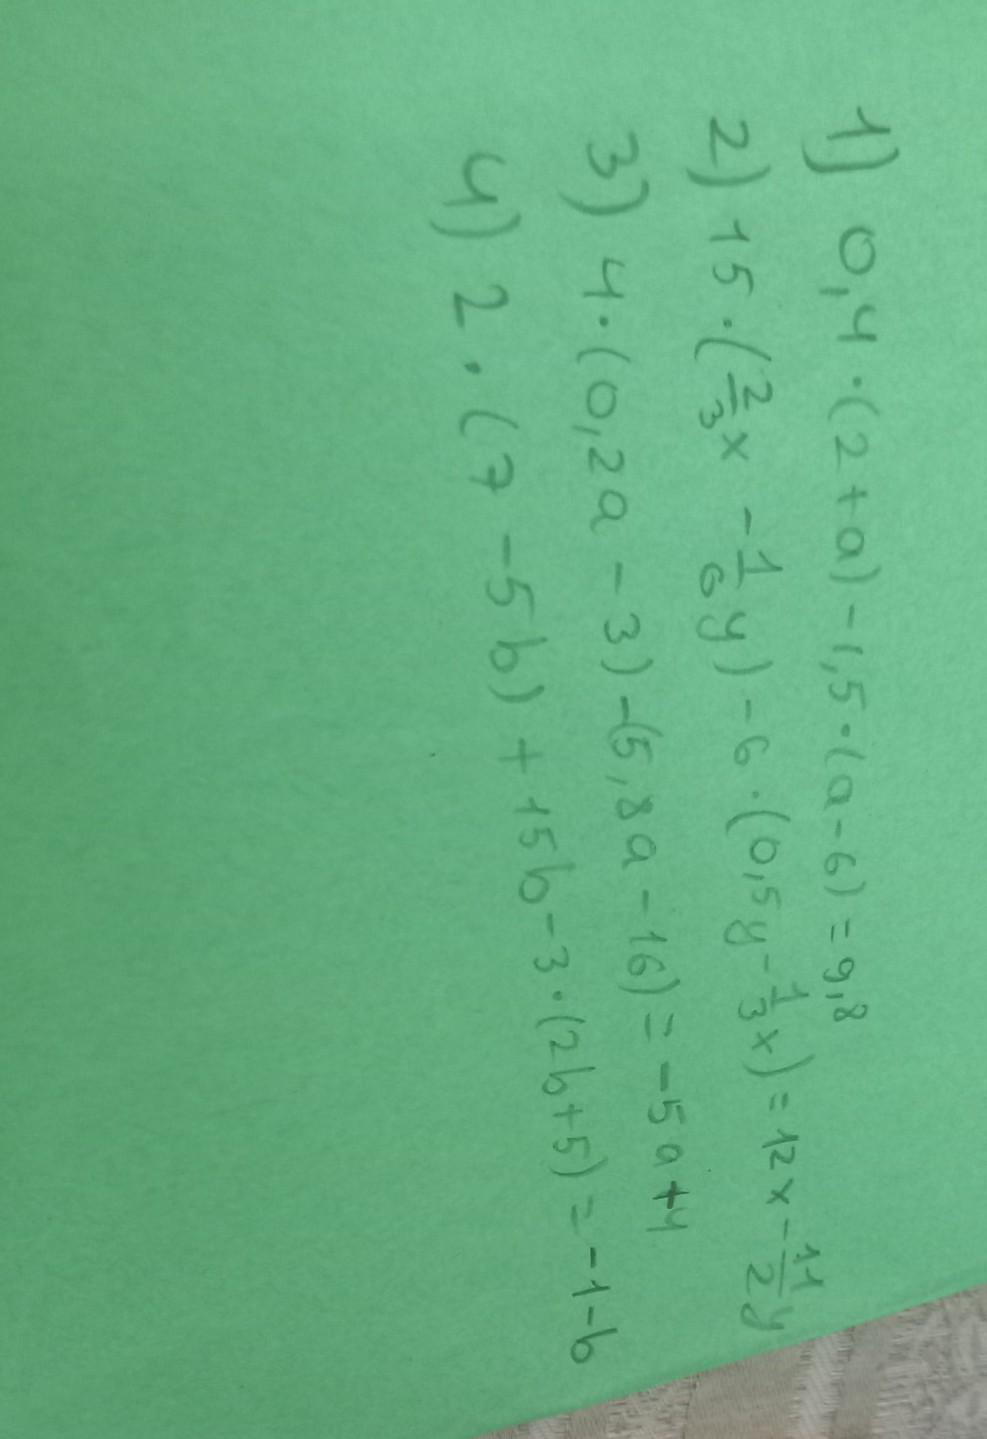 1) 0,4·(2+a)-1,5·(a-6)=9,8
2) 15·(2/3x - 1/6y)-6·(0,5y-1/3x)=12x-11/2y
3) 4·(0,2a-3)-(5,8a-16)=-5a+4
4) 2·(7-5b)+15b-3·(2b+5)=-1-b